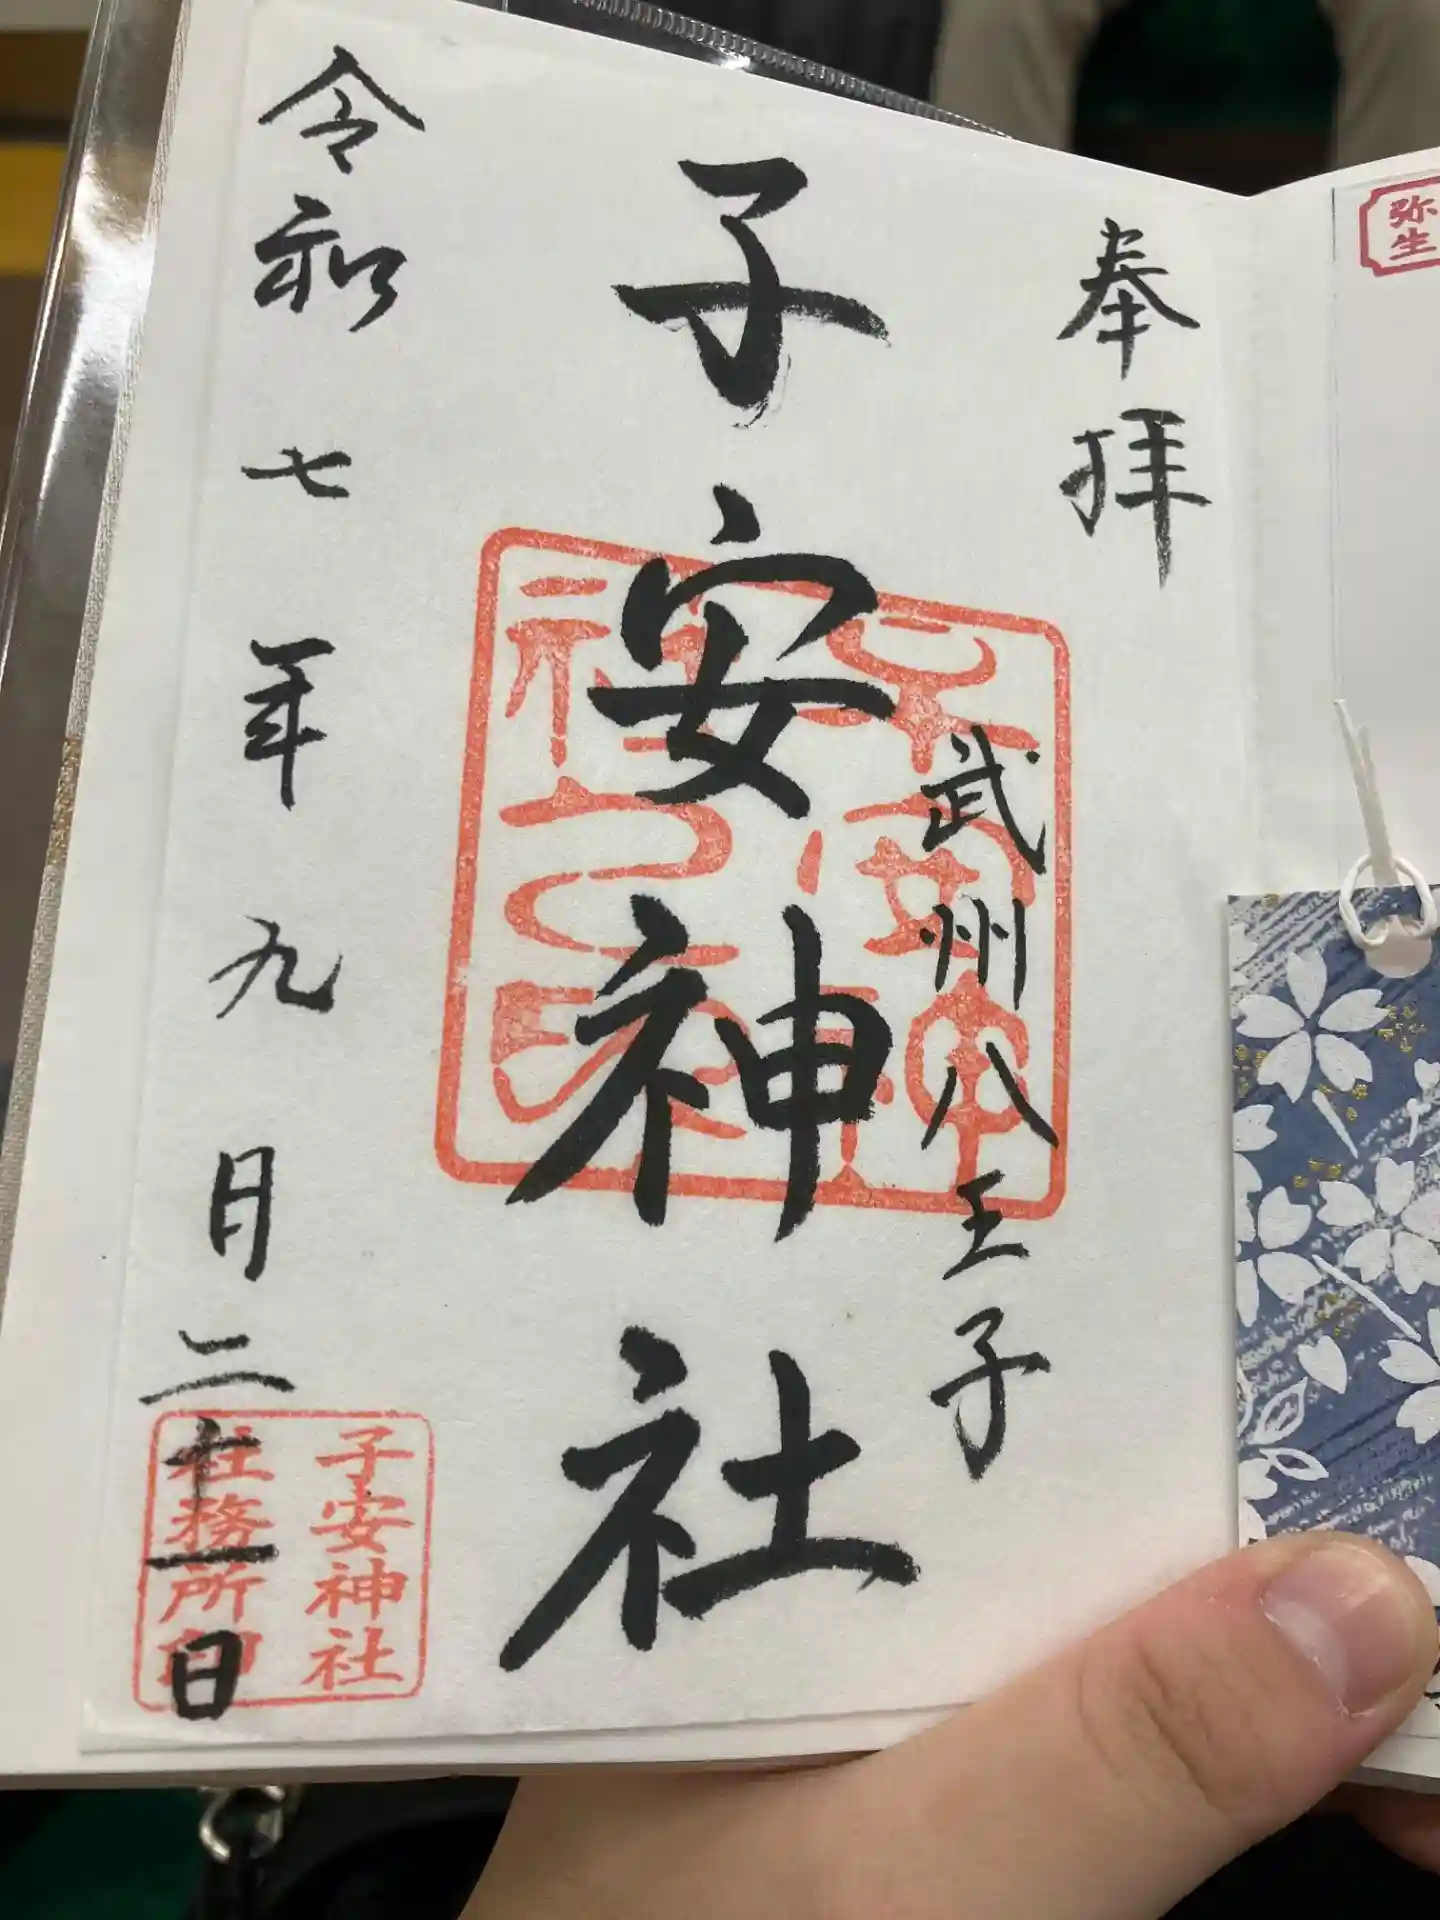 弥生
奉拝
武州八王子
子安神社
子安神社
社務所印
令和七年九月二十一日